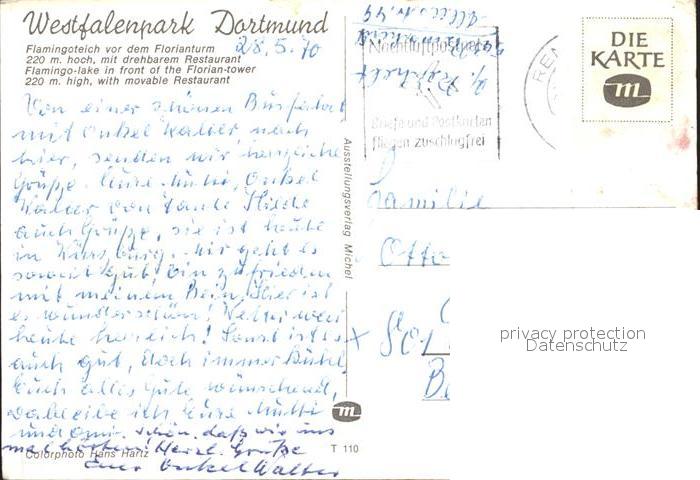 Westfalenpark Dortmund
Flamingoteich vor dem Florianturm
220 m. hoch, mit drehbarem Restaurant
Flamingo-lake in front of the Florian-tower
220 m. high, with movable Restaurant
28.5.70
Von einer schönen Busfahrt
mit Onkel Walter nach
hier, senden wir herzliche
Grüße. Eure Mutti, Onkel
Walter von Tante Hilde
auch Grüße, sie ist heute
in Mir geht es
soweit gut bin zufrieden
mit meinem Bein, Hier ist
es wunderschön! Wetter war
heute herrlich! Sonst ist es
auch gut, doch immer kühl.
Euch alles Gute wünschend,
verbleibe ich Eure Mutti
und Omi. Schön, daß wir uns
mal hörten! Herzl. Grüße
Euer Onkel Walter
Colorphoto Hans Hartz
T 110
Ausstellungsverlag Michel
m
Nachtluftpost
Briefe und Postkarten
fliegen zuschlagfrei
REM
DIE
KARTE
m
Familie
Otto
privacy protection
Datenschutz